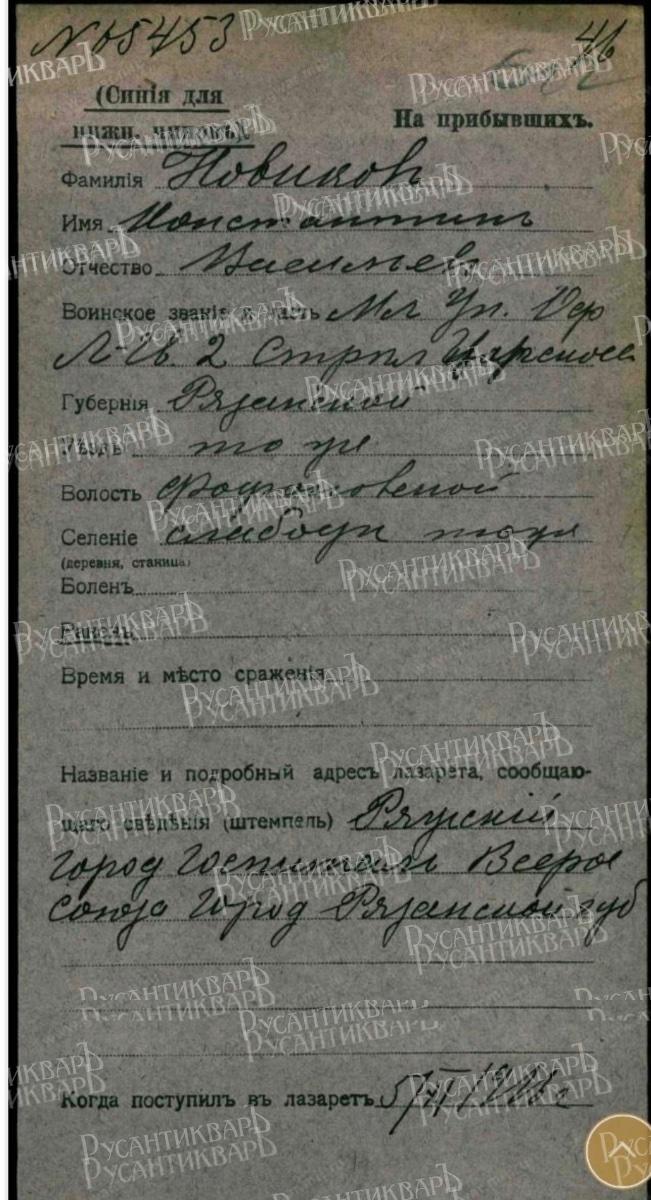 № 5453
46
(Синія для
нижн. чиновъ).
На прибывшихъ.
Фамилія Новиковъ
Имя Константинъ
Отчество Васильевъ
Воинское званіе и часть Мл Ун. Оф
Л-Гв. 2 Стрпл Царскос
Губернія Рязанской
Уѣздъ то же
Волость
Селеніе то же
(деревня, станица)
Боленъ
Раненъ
Время и мѣсто сраженія
Названіе и подробный адресъ лазарета, сообщаю-
щаго свѣдѣнія (штемпель) Ряжскій
город Госпиталь Всерос
союза город Рязанской губ
Когда поступилъ въ лазаретъ
РУСАНТИКВАРЪ